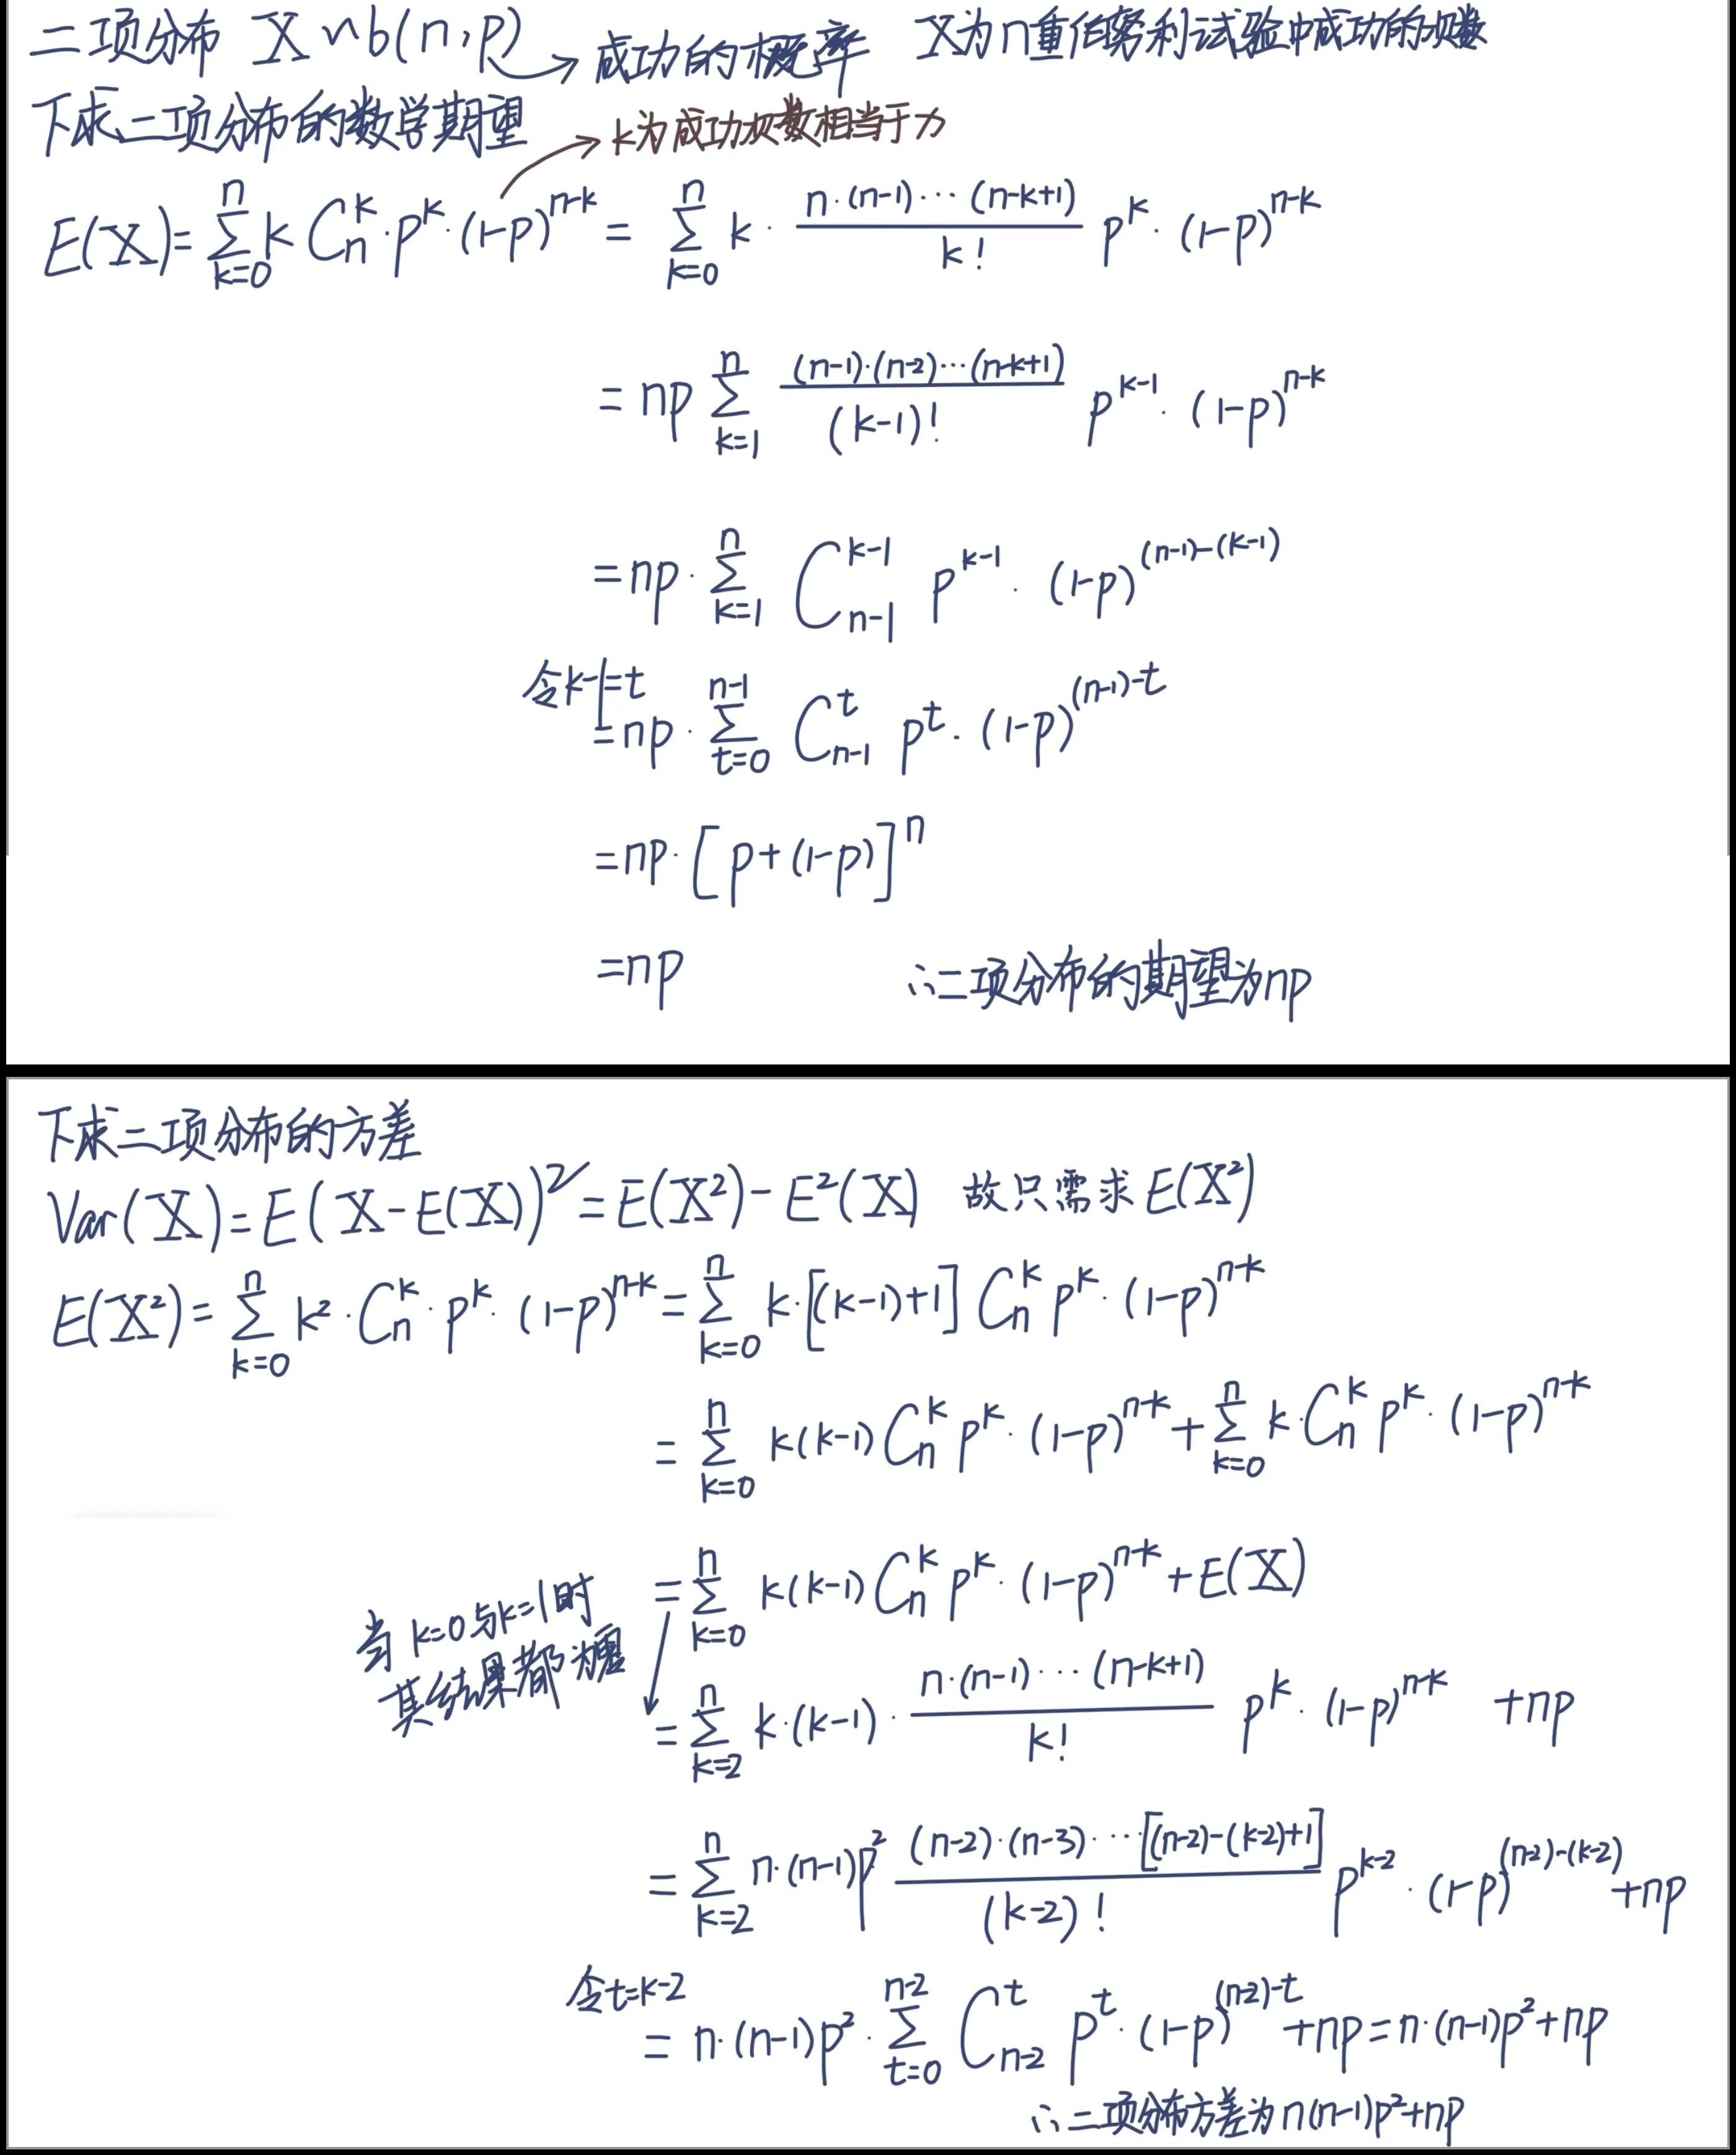 二项分布 X~b(n,p) → 成功的概率 X为n重伯努利试验中成功的次数
下求二项分布的数学期望 → k为成功次数相当于力
E(X)=∑_{k=0}^{n} k C_n^k · p^k · (1-p)^{n-k} = ∑_{k=0}^{n} k · \frac{n·(n-1)···(n-k+1)}{k!} p^k · (1-p)^{n-k}
= np ∑_{k=1}^{n} \frac{(n-1)·(n-2)···(n-k+1)}{(k-1)!} p^{k-1} · (1-p)^{n-k}
= np · ∑_{k=1}^{n} C_{n-1}^{k-1} p^{k-1} · (1-p)^{(n-1)-(k-1)}
令k-1=t
= np · ∑_{t=0}^{n-1} C_{n-1}^{t} p^t · (1-p)^{(n-1)-t}
= np · [p+(1-p)]^n
= np ∴二项分布的期望为np
下求二项分布的方差
Var(X)=E(X-E(X))^2=E(X^2)-E^2(X) 故只需求E(X^2)
E(X^2)=∑_{k=0}^{n} k^2 · C_n^k · p^k · (1-p)^{n-k} = ∑_{k=0}^{n} k·[(k-1)+1] C_n^k p^k · (1-p)^{n-k}
= ∑_{k=0}^{n} k(k-1) C_n^k p^k · (1-p)^{n-k} + ∑_{k=0}^{n} k·C_n^k p^k · (1-p)^{n-k}
= ∑_{k=0}^{n} k(k-1) C_n^k p^k · (1-p)^{n-k} + E(X)
当k=0与k=1时
其结果都为
= ∑_{k=2}^{n} k·(k-1) · \frac{n·(n-1)···(n-k+1)}{k!} p^k · (1-p)^{n-k} +np
= ∑_{k=2}^{n} n·(n-1)p^2 \frac{(n-2)·(n-3)···[(n-2)-(k-2)+1]}{(k-2)!} p^{k-2} · (1-p)^{(n-2)-(k-2)} +np
令t=k-2
= n·(n-1)p^2 · ∑_{t=0}^{n-2} C_{n-2}^{t} p^t · (1-p)^{(n-2)-t} +np = n·(n-1)p^2+np
∴二项分布方差为n(n-1)p^2+np